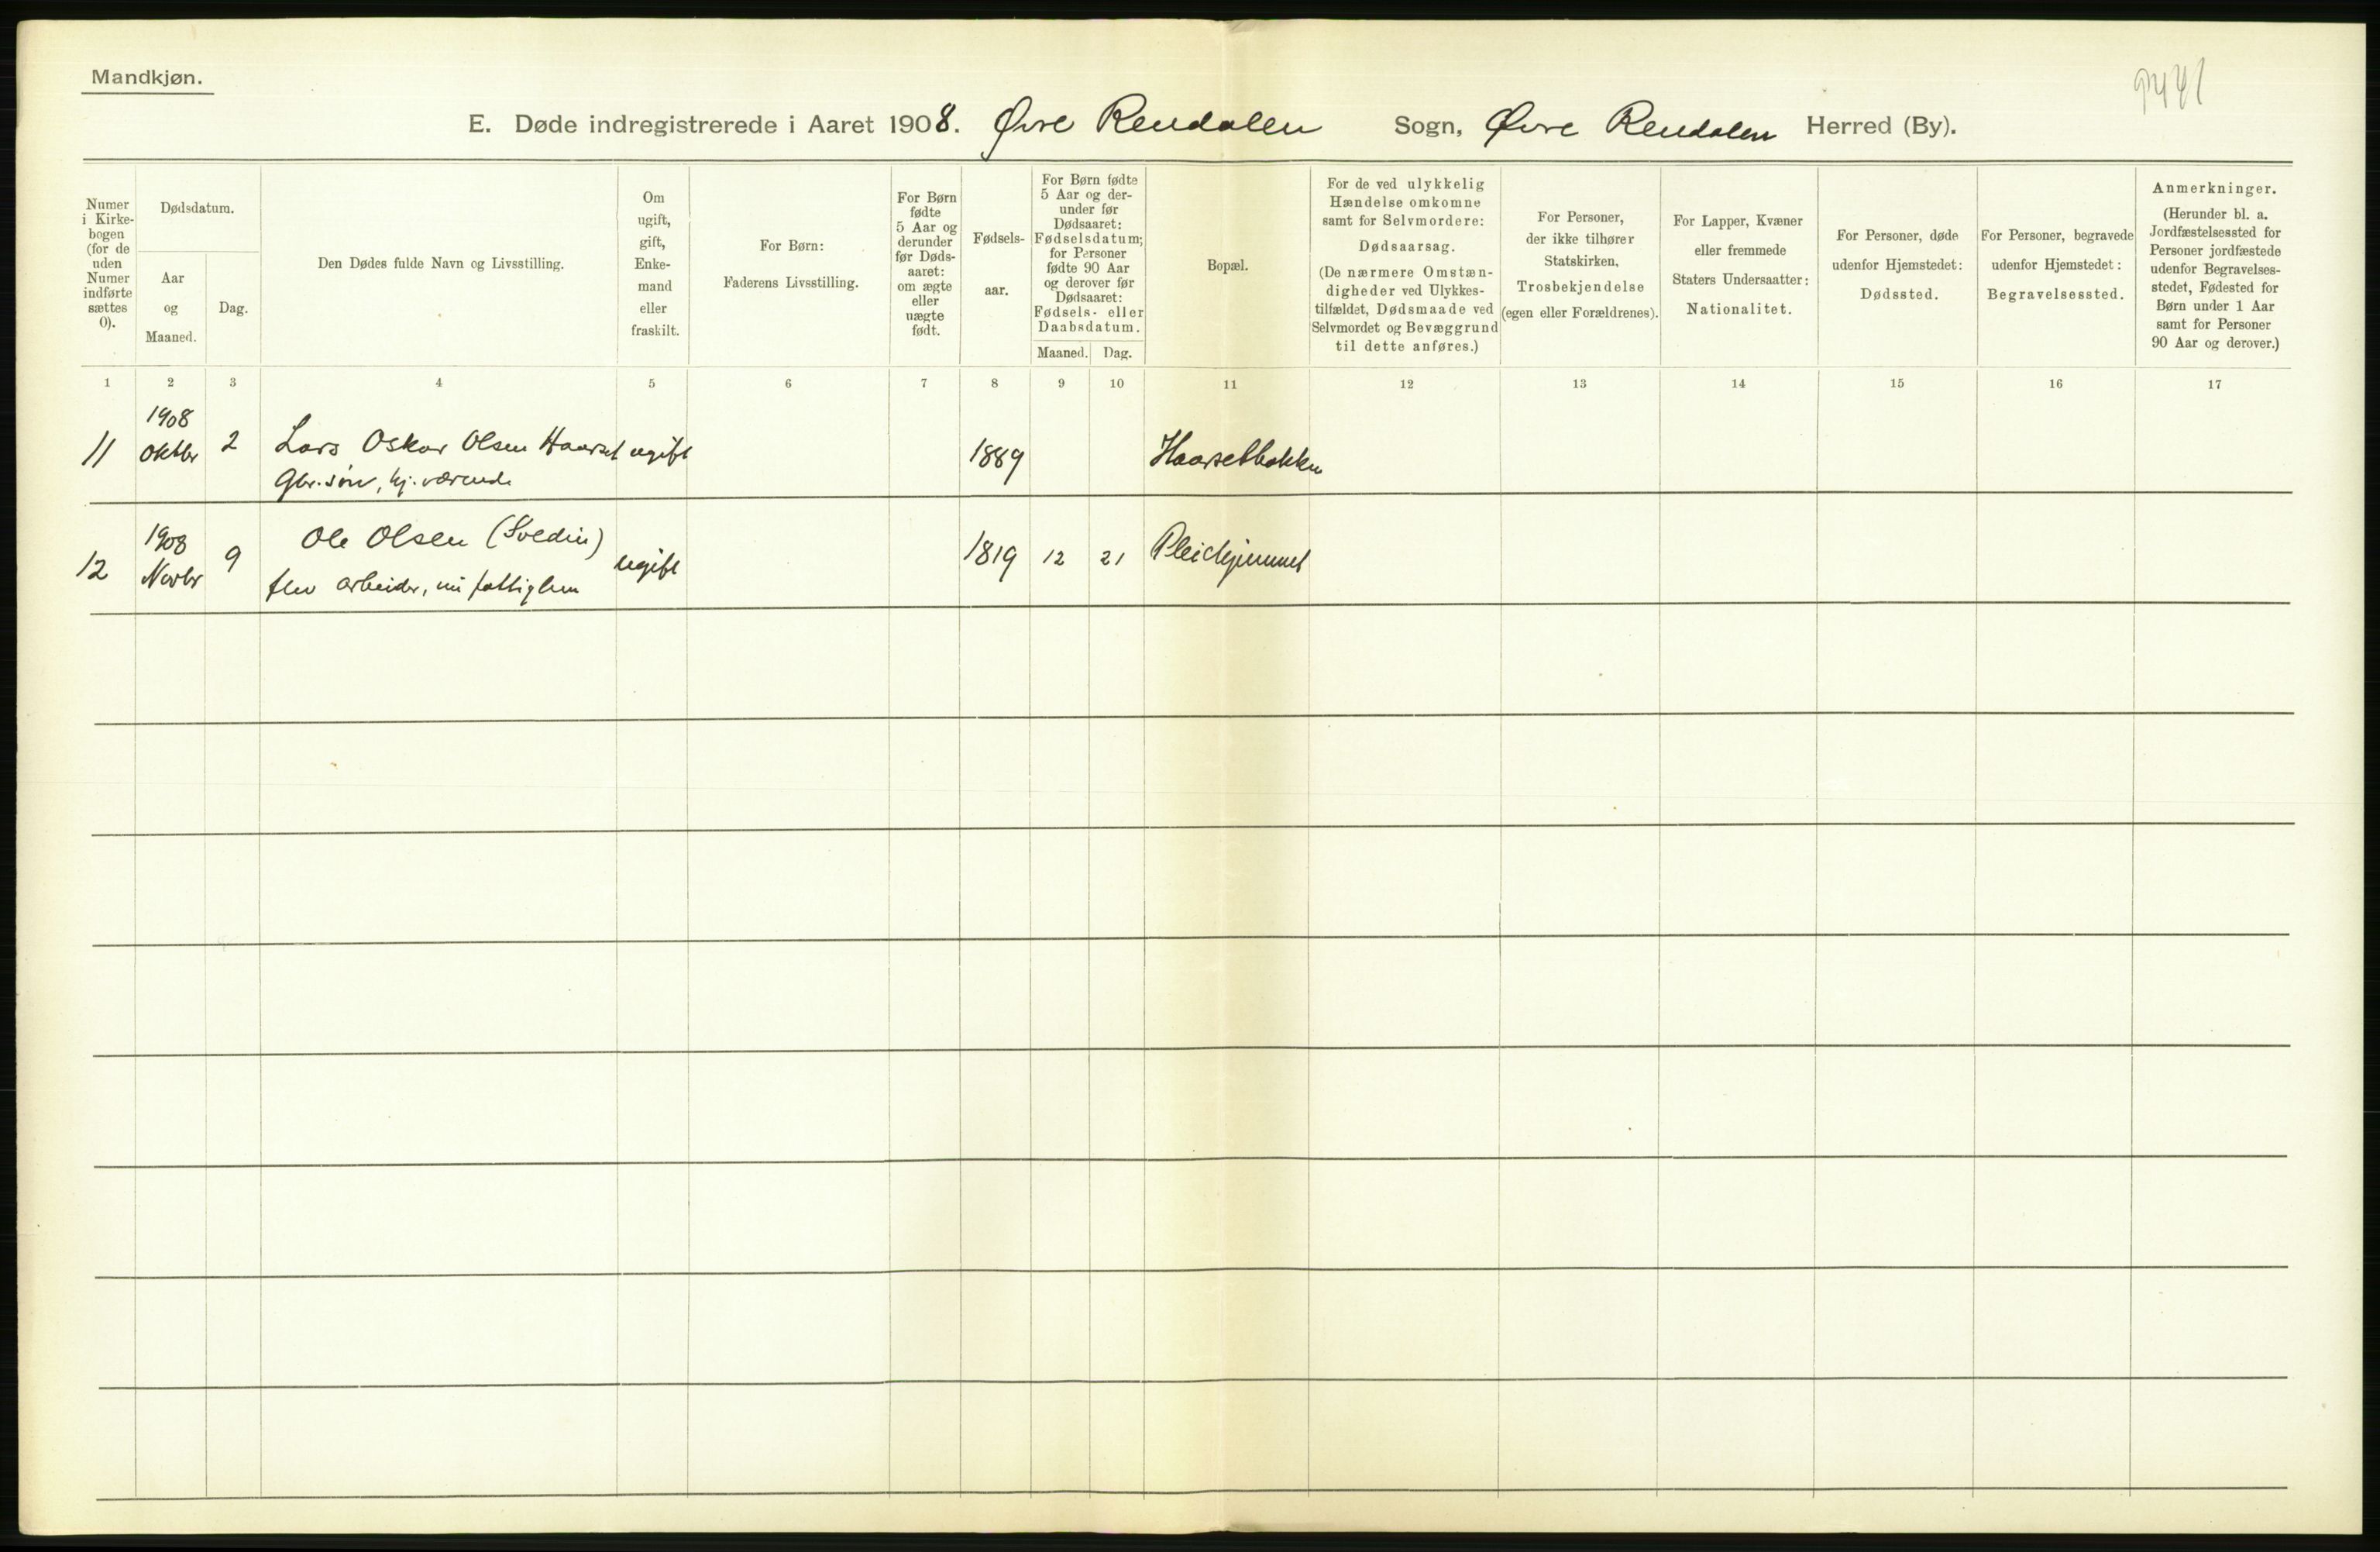 Mandkjøn.
9441
E. Døde indregistrerede i Aaret 1908. Øvre Rendalen Sogn, Øvre Rendalen Herred (By).
Numer
i Kirke-
bogen
(for de
uden
Numer
indførte
sættes
0).
Dødsdatum.
Aar
og
Maaned.
Dag.
Den Dødes fulde Navn og Livsstilling.
Om
ugift,
gift,
Enke-
mand
eller
fraskilt.
For Børn:
Faderens Livsstilling.
For Børn
fødte
5 Aar og
derunder
før Døds-
aaret:
om ægte
eller
uægte
født.
Fødsels-
aar.
For Børn fødte
5 Aar og der-
under før
Dødsaaret:
Fødselsdatum;
for Personer
fødte 90 Aar
og derover før
Dødsaaret:
Fødsels- eller
Daabsdatum.
Maaned. Dag.
Bopæl.
For de ved ulykkelig
Hændelse omkomne
samt for Selvmordere:
Dødsaarsag.
(De nærmere Omstæn-
digheder ved Ulykkes-
tilfældet, Dødsmaade ved
Selvmordet og Bevæggrund
til dette anføres.)
For Personer,
der ikke tilhører
Statskirken,
Trosbekjendelse
(egen eller Forældrenes).
For Lapper, Kvæner
eller fremmede
Staters Undersaatter:
Nationalitet.
For Personer, døde
udenfor Hjemstedet:
Dødssted.
For Personer, begravede
udenfor Hjemstedet:
Begravelsessted.
Anmerkninger.
(Herunder bl. a.
Jordfæstelsessted for
Personer jordfæstede
udenfor Begravelses-
stedet, Fødested for
Børn under 1 Aar
samt for Personer
90 Aar og derover.)
1 2 3 4 5 6 7 8 9 10 11 12 13 14 15 16 17
1908
11 Oktbr 2 Lars Oskar Olsen Haarset ugift 1889 Haarsetbakken
Gbr.søn, hj.værende
1908
12 Novbr 9 Ole Olsen (Svedin) ugift 1819 12 21 Pleiehjemmet
flv arbeider, nu fattiglem